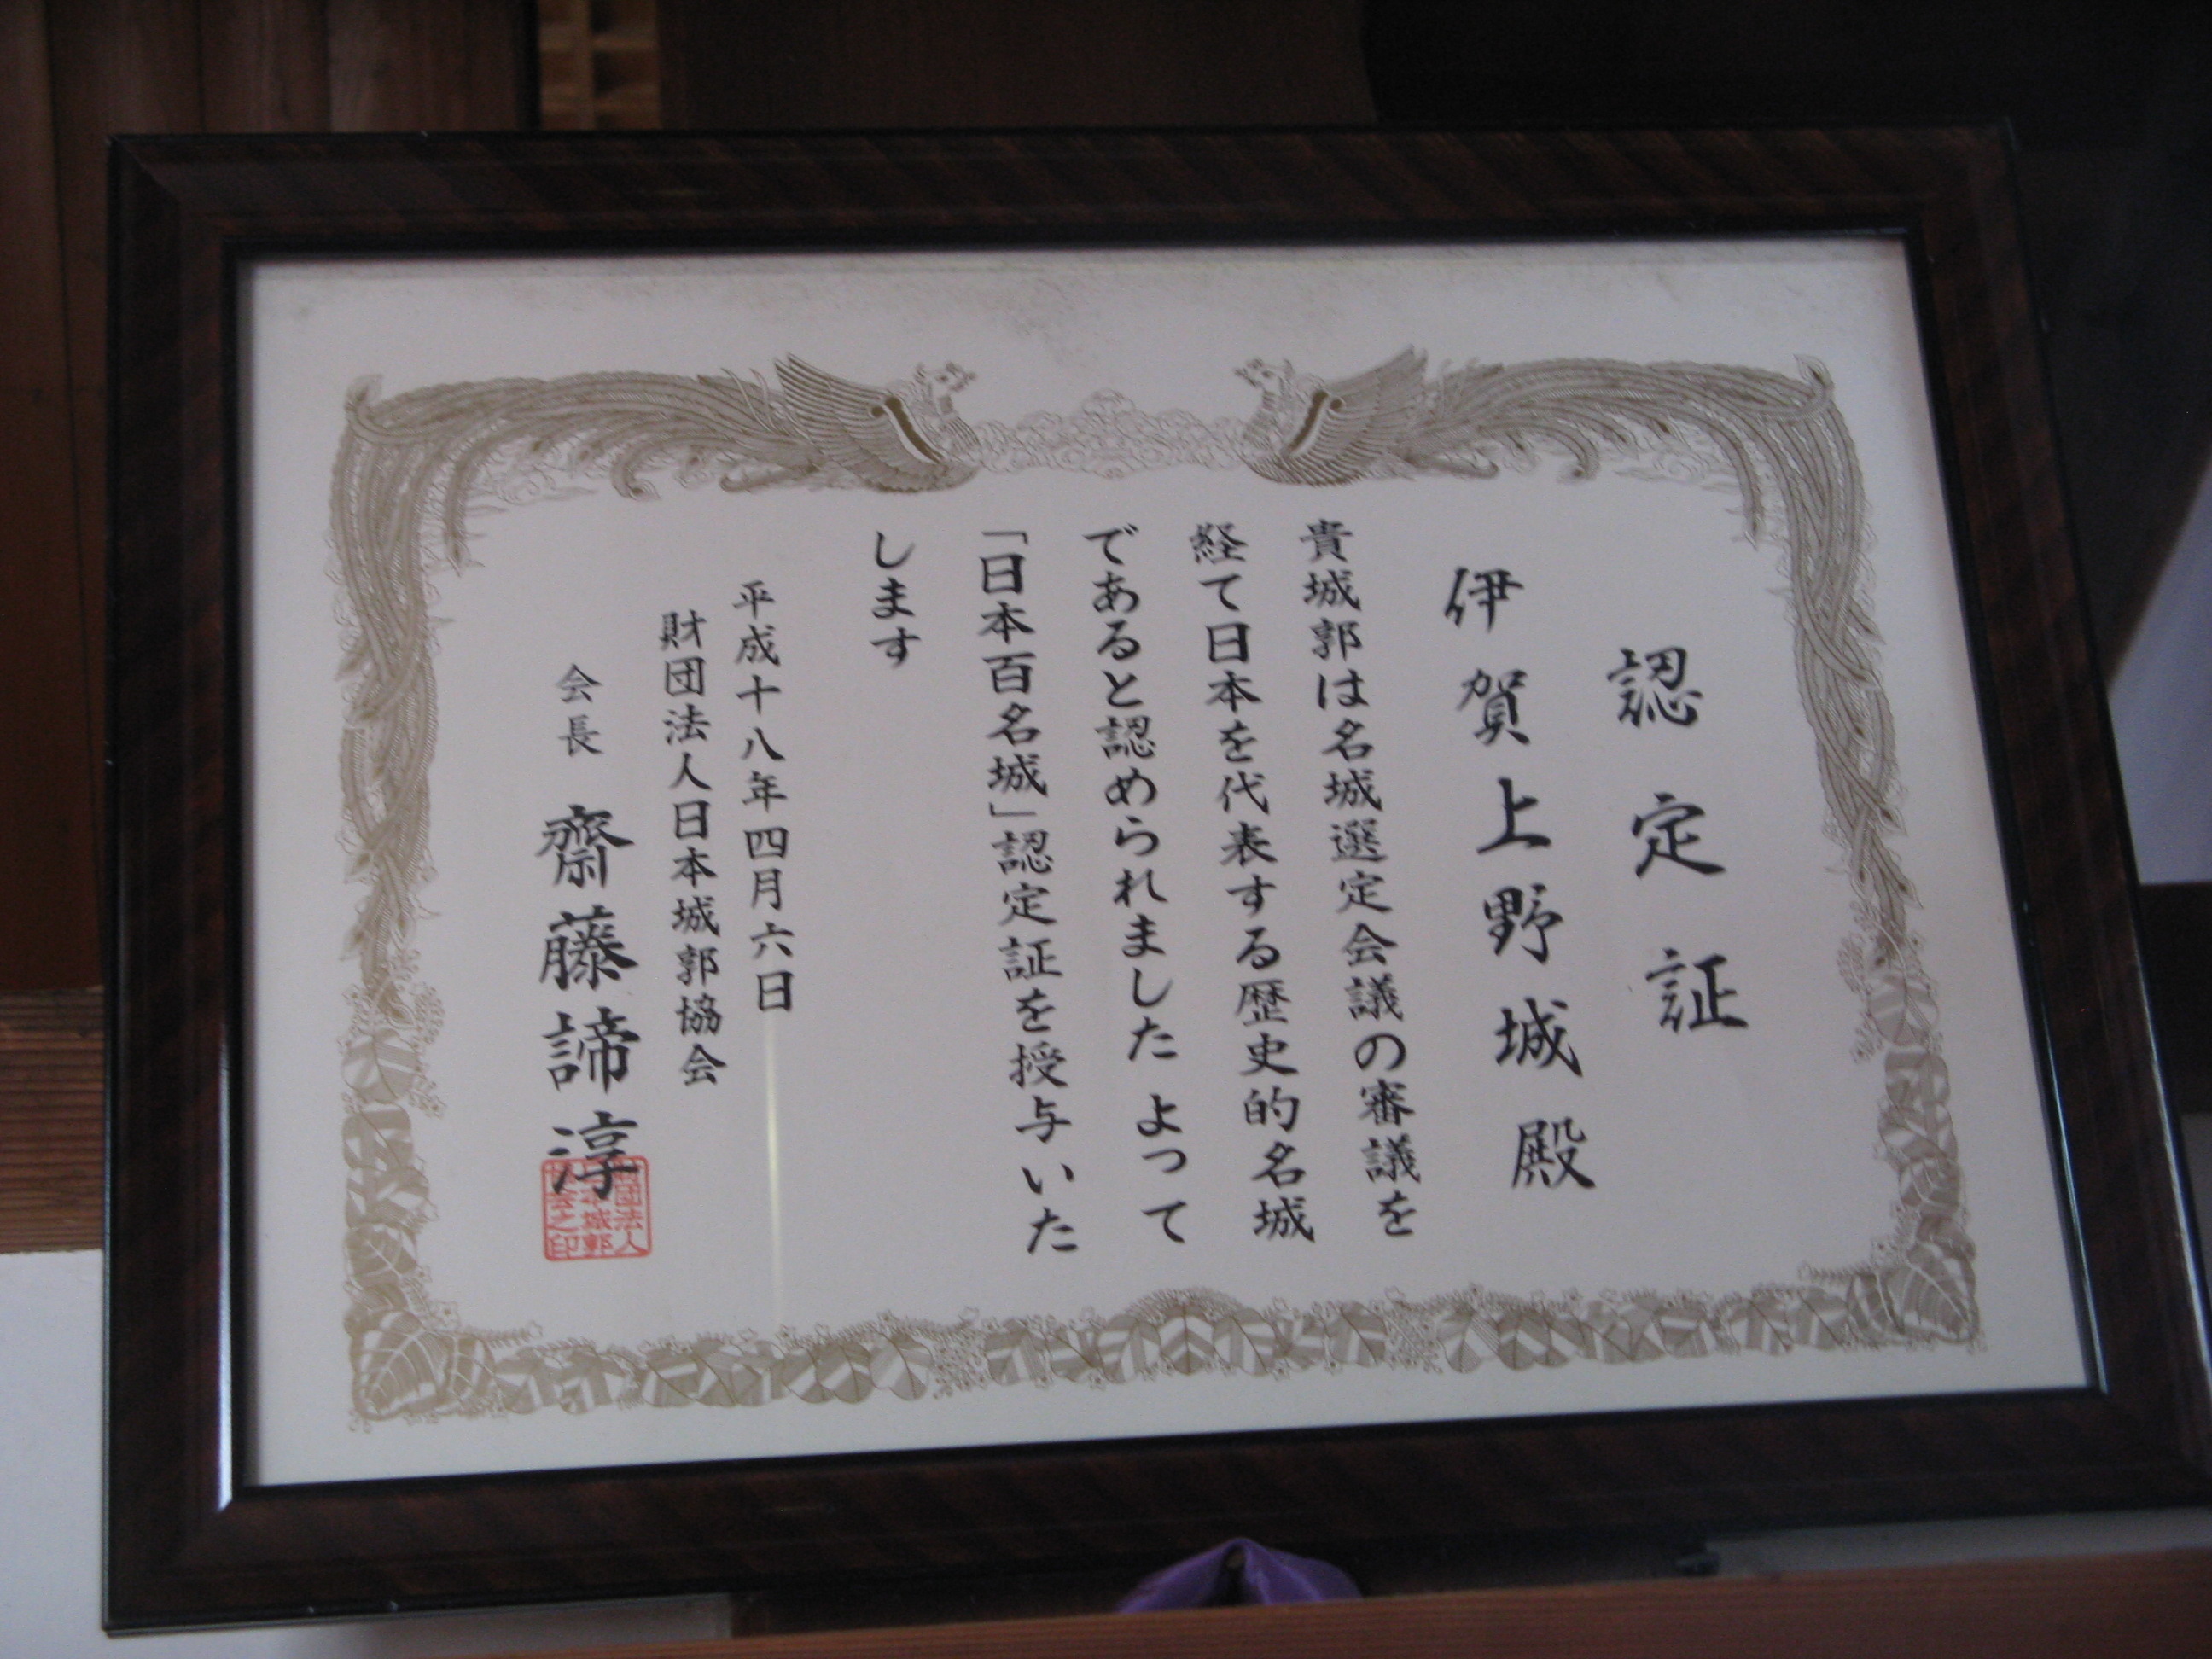 認定証
伊賀上野城殿
貴城郭は名城選定会議の審議を
経て日本を代表する歴史的名城
であると認められました よって
「日本百名城」認定証を授与いた
します
平成十八年四月六日
財団法人日本城郭協会
会長 齋藤諦淳
財団法人
日本城郭
協会之印